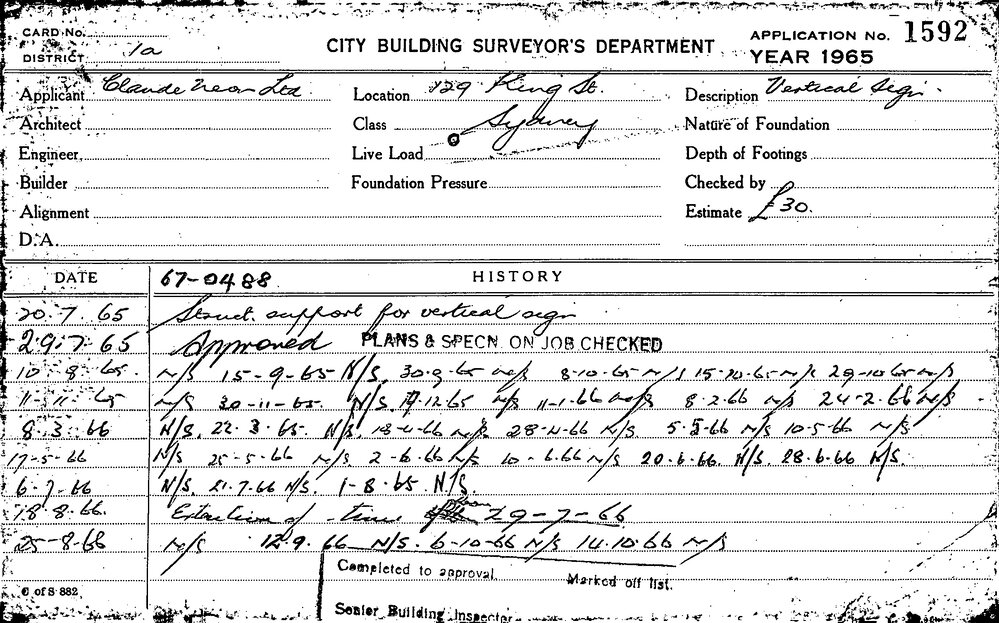 CARD No. APPLICATION No. 1592
DISTRICT 1a CITY BUILDING SURVEYOR'S DEPARTMENT YEAR 1965
Applicant Claude Neon Ltd. Location 129 King St. Description Vertical Sign.
Architect Class Sydney Nature of Foundation
Engineer Live Load Depth of Footings
Builder Foundation Pressure Checked by
Alignment Estimate £30.
D.A.
DATE 67-0488 HISTORY
20.7.65 Struct. support for vertical sign
29.7.65 Approved PLANS & SPECN. ON JOB CHECKED
10.8.65. N/S 15-9-65 N/S. 30.9.65 N/S 8-10-65 N/S 15-10-65 N/S 29-10-65 N/S
11-11-65 N/S 30-11-65. N/S. 12.65 N/S 11-1-66 N/S 8.2.66 N/S 24-2-66 N/S
8.3.66 N/S. 22.3.65. N/S. 18-4-66 N/S 28-4-66 N/S 5.5-66 N/S 10-5-66 N/S
17-5-66 N/S 25-5-66 N/S. 2-6-66 N/S 10-6.66 N/S 20.6.66. N/S. 28.6.66 N/S.
6-7-66 N/S. 21.7.66 N/S. 1-8.65. N/S.
18.8.66. Extention of time from 29-7-66
25-8-66 N/S 12.9.66 N/S. 6-10-66 N/S 14.10.66 N/S
Completed to approval. Marked off list.
C of S 882
Senior Building Inspector